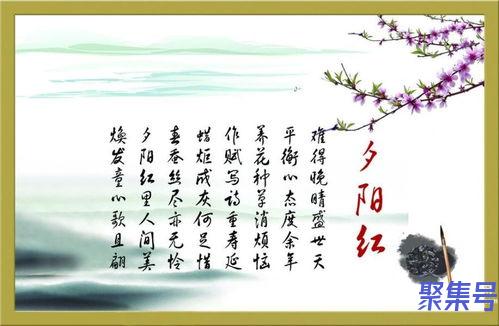 夕阳红
难得晚晴盛世天
平衡心态度余年
养花种草消烦恼
作赋写诗重寿延
蜡炬成灰何足惜
春蚕丝尽亦无怜
夕阳红里人间美
焕发童心歌且翩
聚集号